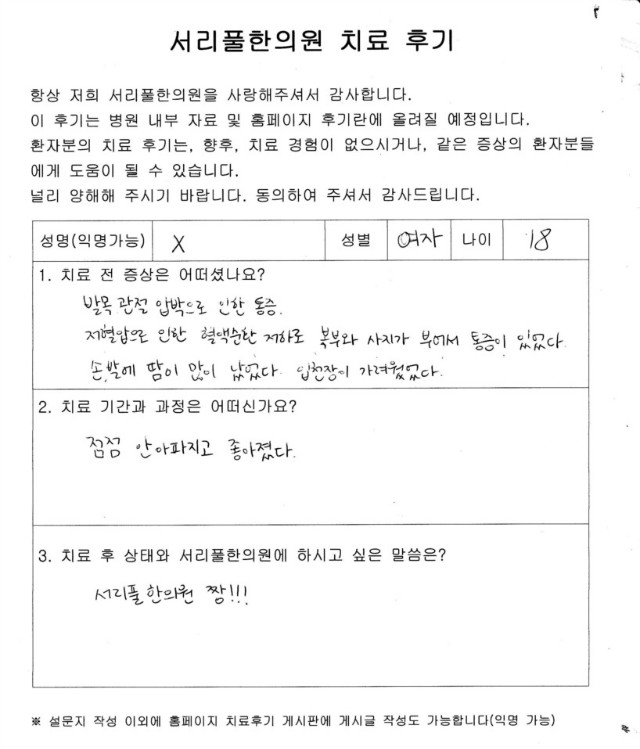 서리풀한의원 치료 후기
항상 저희 서리풀한의원을 사랑해주셔서 감사합니다.
이 후기는 병원 내부 자료 및 홈페이지 후기란에 올려질 예정입니다.
환자분의 치료 후기는, 향후, 치료 경험이 없으시거나, 같은 증상의 환자분들
에게 도움이 될 수 있습니다.
널리 양해해 주시기 바랍니다. 동의하여 주셔서 감사드립니다.
성명(익명가능) X 성별 여자 나이 18
1. 치료 전 증상은 어떠셨나요?
발목 관절 압박으로 인한 통증.
저혈압으로 인한 혈액순환 저하로 복부와 사지가 부어서 통증이 있었다.
손, 발에 땀이 많이 났었다. 입천장이 가려웠었다.
2. 치료 기간과 과정은 어떠신가요?
점점 안아파지고 좋아졌다.
3. 치료 후 상태와 서리풀한의원에 하시고 싶은 말씀은?
서리풀한의원 짱!!!
※ 설문지 작성 이외에 홈페이지 치료후기 게시판에 게시글 작성도 가능합니다(익명 가능)